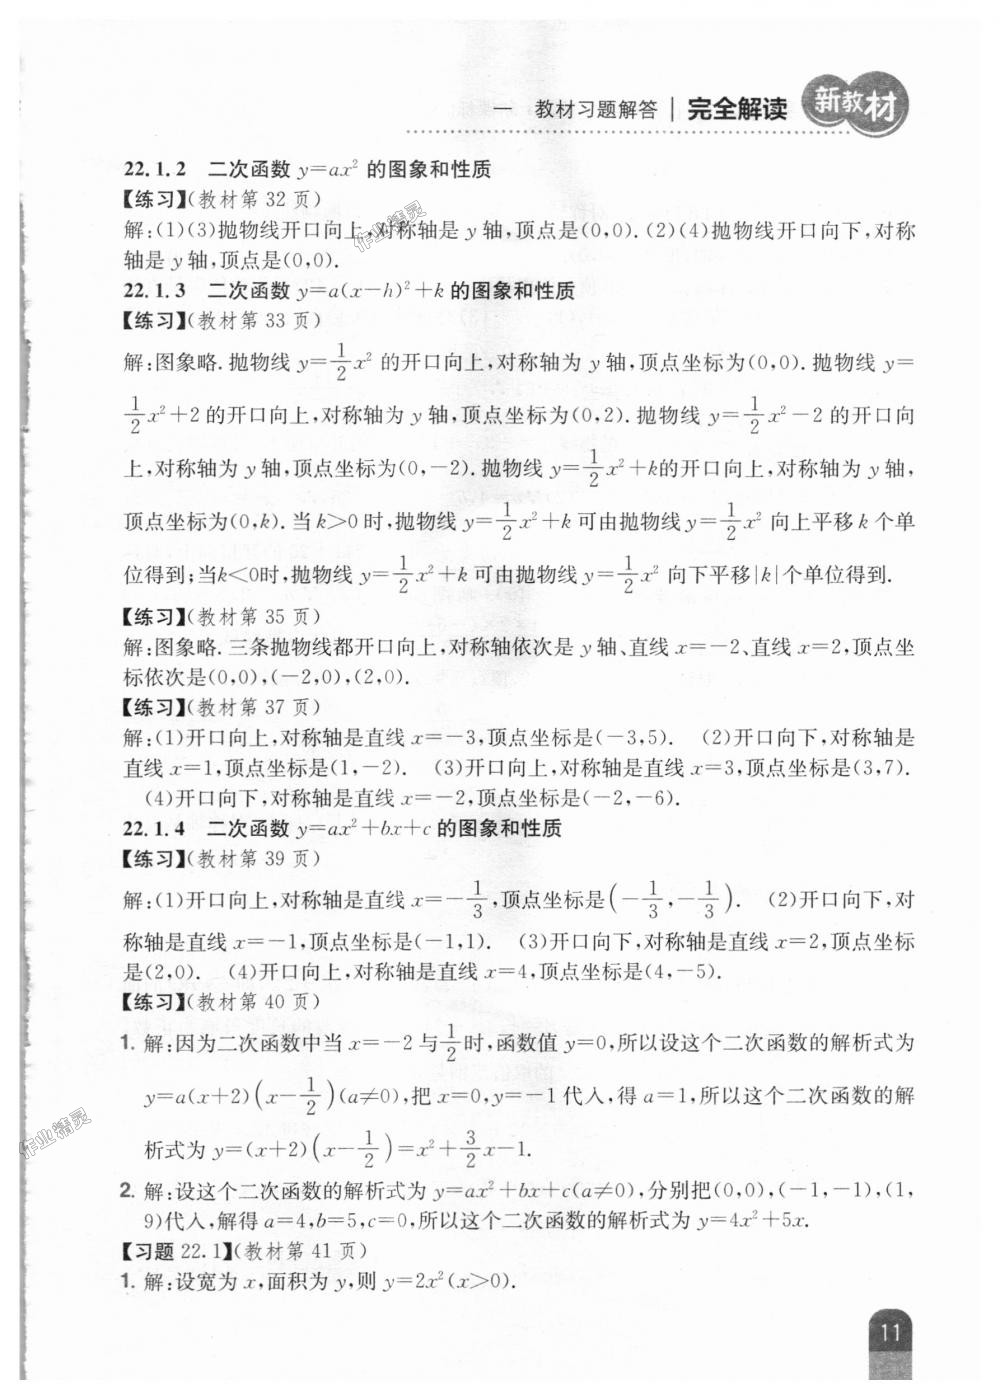 一 教材习题解答 | 完全解读 新教材
22.1.2 二次函数 y=ax² 的图象和性质
【练习】(教材第 32 页)
解:(1)(3)抛物线开口向上,对称轴是 y 轴,顶点是(0,0). (2)(4)抛物线开口向下,对称
轴是 y 轴,顶点是(0,0).
22.1.3 二次函数 y=a(x-h)²+k 的图象和性质
【练习】(教材第 33 页)
解:图象略. 抛物线 y=1/2x² 的开口向上,对称轴为 y 轴,顶点坐标为(0,0). 抛物线 y=
1/2x²+2 的开口向上,对称轴为 y 轴,顶点坐标为(0,2). 抛物线 y=1/2x²-2 的开口向
上,对称轴为 y 轴,顶点坐标为(0,-2). 抛物线 y=1/2x²+k的开口向上,对称轴为 y 轴,
顶点坐标为(0,k). 当 k>0 时,抛物线 y=1/2x²+k 可由抛物线 y=1/2x² 向上平移 k 个单
位得到;当k<0时,抛物线 y=1/2x²+k 可由抛物线 y=1/2x² 向下平移|k|个单位得到.
【练习】(教材第 35 页)
解:图象略. 三条抛物线都开口向上,对称轴依次是 y 轴、直线 x=-2、直线 x=2,顶点坐
标依次是(0,0),(-2,0),(2,0).
【练习】(教材第 37 页)
解:(1)开口向上,对称轴是直线 x=-3,顶点坐标是(-3,5). (2)开口向下,对称轴是
直线 x=1,顶点坐标是(1,-2). (3)开口向上,对称轴是直线 x=3,顶点坐标是(3,7).
(4)开口向下,对称轴是直线 x=-2,顶点坐标是(-2,-6).
22.1.4 二次函数 y=ax²+bx+c 的图象和性质
【练习】(教材第 39 页)
解:(1)开口向上,对称轴是直线 x=-1/3,顶点坐标是(-1/3,-1/3). (2)开口向下,对
称轴是直线 x=-1,顶点坐标是(-1,1). (3)开口向下,对称轴是直线 x=2,顶点坐标
是(2,0). (4)开口向上,对称轴是直线 x=4,顶点坐标是(4,-5).
【练习】(教材第 40 页)
1. 解:因为二次函数中当 x=-2 与1/2时,函数值 y=0,所以设这个二次函数的解析式为
y=a(x+2)(x-1/2)(a≠0),把 x=0,y=-1 代入,得 a=1,所以这个二次函数的解
析式为 y=(x+2)(x-1/2)=x²+3/2x-1.
2. 解:设这个二次函数的解析式为 y=ax²+bx+c(a≠0),分别把(0,0),(-1,-1),(1,
9)代入,解得 a=4,b=5,c=0,所以这个二次函数的解析式为 y=4x²+5x.
【习题 22.1】(教材第 41 页)
1. 解:设宽为 x,面积为 y,则 y=2x²(x>0).
11
作业精灵
作业精灵